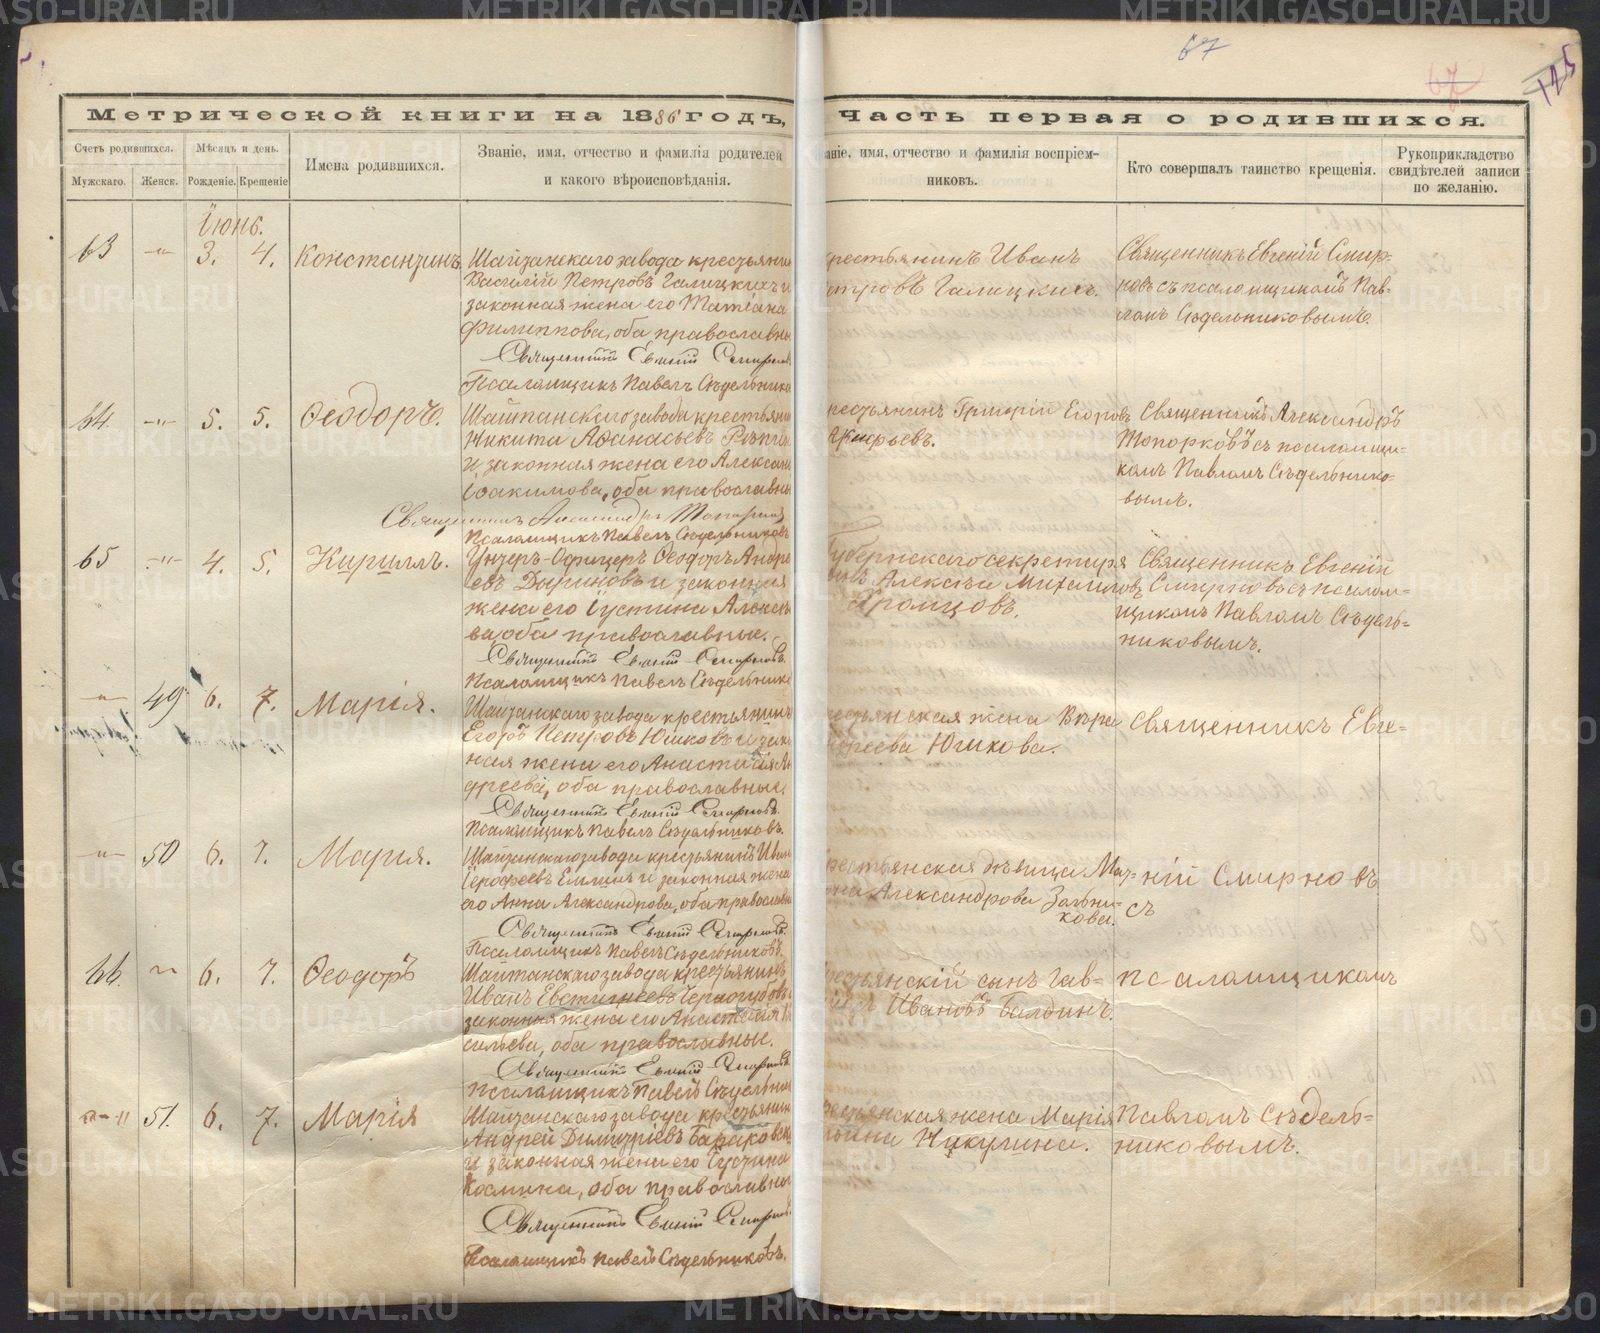 67
67
145
Метрической книги на 1886 годъ,
Часть первая о родившихся.
Счетъ родившихся.
Мѣсяцъ и день.
Мужскаго.
Женск.
Рожденіе.
Крещеніе
Имена родившихся.
Званіе, имя, отчество и фамилія родителей
и какого вѣроисповѣданія.
аніе, имя, отчество и фамилія воспріем-
никовъ.
Кто совершалъ таинство крещенія.
Рукоприкладство
свидѣтелей записи
по желанію.
Іюнь.
63 —"— 3. 4. Константинъ.
Шайтанскаго завода крестьянин
Василій Петровъ Галицкихъ и
законная жена его Татіана
Филиппова, оба православны
Священникъ Евгеній Смирнов
Псаломщикъ Павелъ Сѣдельнико
крестьянинъ Иванъ
етровъ Галицкихъ.
Священникъ Евгеній Смир-
новъ съ псаломщикомъ Пав-
ломъ Сѣдельниковымъ.
64. —"— 5. 5. Ѳеодоръ.
Шайтанскаго завода крестьянин
Никита Аѳанасьевъ
и законная жена его Алексан
Іоакимова, оба православны
Священникъ Александръ Топорков
Псаломщикъ Павелъ Сѣдельниковъ
рестьянинъ Григорій Егоровъ
Священникъ Александръ
Топорковъ съ псаломщи-
комъ Павломъ Сѣдельнико-
вымъ.
65 —"— 4. 5. Кириллъ.
Унтеръ-Офицеръ Ѳеодоръ Андре
евъ Дыриновъ и законная
жена его Іустина Алексѣе
ва, оба православные.
Священникъ Евгеній Смирновъ.
Псаломщикъ Павелъ Сѣдельнико
Губернскаго секретаря
сынъ Алексѣй Михаиловъ
Храмцовъ.
Священникъ Евгеній
Смирновъ съ псалом-
щикомъ Павломъ Сѣдель-
никовымъ.
—"— 49 6. 7. Марія.
Шайтанскаго завода крестьянинъ
Егоръ Петровъ Юшковъ и зако
ная жена его Анастасія Ан
дреева, оба православные,
Священникъ Евгеній Смирновъ.
Псаломщикъ Павелъ Сѣдельниковъ.
рестьянская жена Вѣра
Юшкова.
Священникъ Евге-
—"— 50 6. 7. Мария.
Шайтанскаго завода крестьянинъ Иван
Ерофеевъ Емлинъ и законная жена
его Анна Александрова, оба православн
Священникъ Евгеній Смирновъ.
Псаломщикъ Павелъ Сѣдельниковъ.
рестьянская дѣвица Ма-
Александрова
кова.
ній Смирновъ
съ
66. —"— 6. 7. Ѳеодоръ
Шайтанскаго завода крестьянинъ
Иванъ Евстигнеевъ Черногубовъ и
законная жена его Анастасія Ва
сильева, оба православные.
Священникъ Евгеній Смирновъ
Псаломщикъ Павелъ Сѣдельни
рестьянскій сынъ Гав-
Ивановъ Балдинъ.
псаломщикомъ
—"— 51. 6. 7. Марія
Шайтанскаго завода крестьянин
Андрей Димитріевъ
и законная жена его Іустина
Космина, оба православны
Священникъ Евгеній Смирнов
Псаломщикъ Павелъ Сѣдельниковъ.
рестьянская жена Марія
Чикулина.
Павломъ Сѣдель-
никовымъ.
METRIKI.GASO-URAL.RU